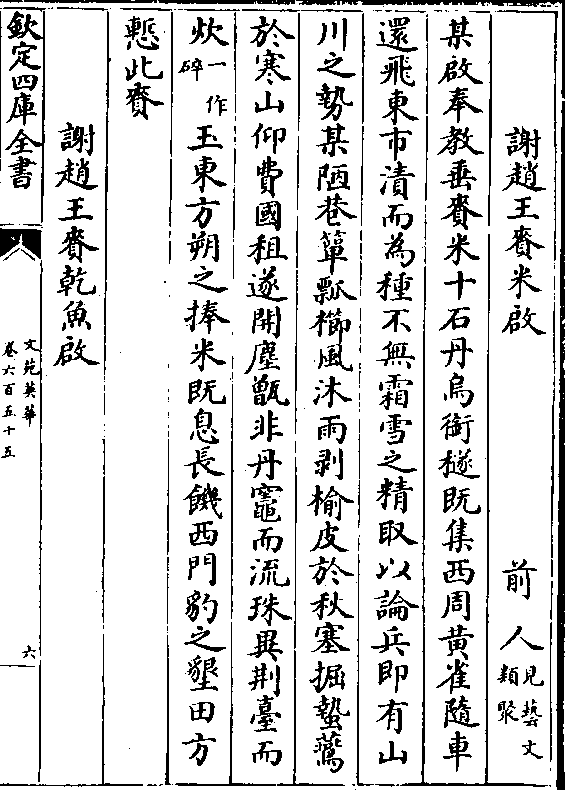 謝趙王賚米啟　前人見藝文類聚
某啟奉教垂賚米十石丹烏銜穟既集西周黃雀隨車
還飛東市漬而為種不無霜雪之精取以論兵即有山
川之勢某陋巷簞瓢櫛風沐雨剥榆皮於秋塞掘蟄鷰
於寒山仰費國租遂開塵甑非丹竈而流珠異荆臺而
炊一作碎玉東方朔之捧米既息長饑西門豹之墾田方
慙此賚
謝趙王賚乾魚啟
欽定四庫全書
文苑英華
卷六百五十五
六